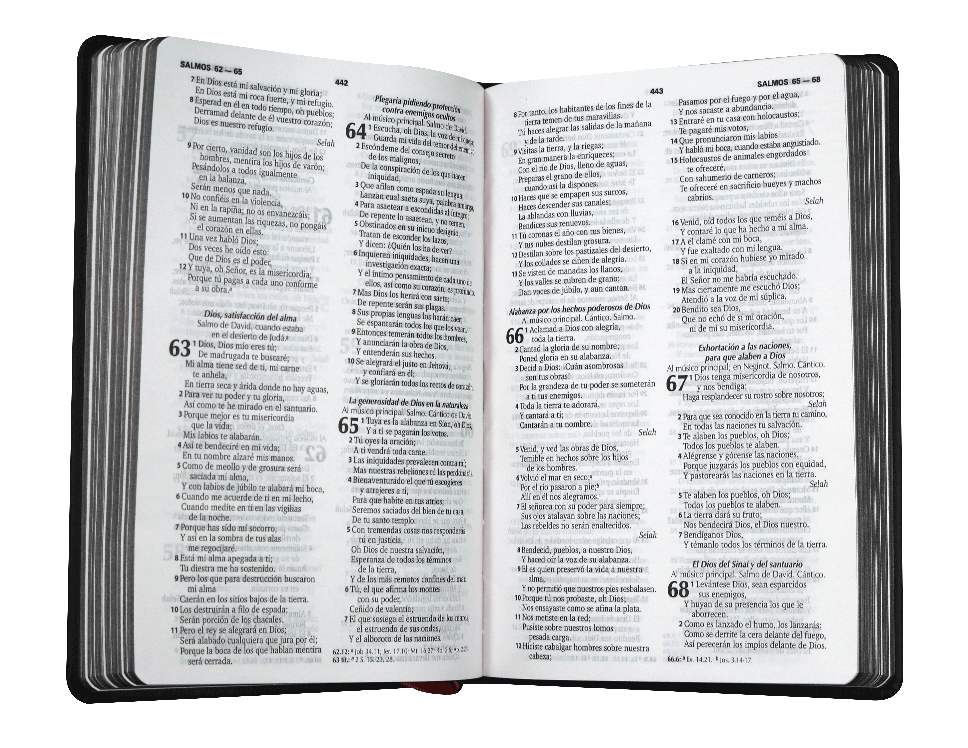 SALMOS 62 — 65
442
7 En Dios está mi salvación y mi gloria;
En Dios está mi roca fuerte, y mi refugio.
8 Esperad en él en todo tiempo, oh pueblos;
Derramad delante de él vuestro corazón;
Dios es nuestro refugio.
Selah
9 Por cierto, vanidad son los hijos de los
hombres, mentira los hijos de varón;
Pesándolos a todos igualmente
en la balanza,
Serán menos que nada.
10 No confiéis en la violencia,
Ni en la rapiña; no os envanezcáis;
Si se aumentan las riquezas, no pongáis
el corazón en ellas.
11 Una vez habló Dios;
Dos veces he oído esto:
Que de Dios es el poder,
12 Y tuya, oh Señor, es la misericordia;
Porque tú pagas a cada uno conforme
a su obra.ª
Dios, satisfacción del alma
Salmo de David, cuando estaba
en el desierto de Judá.ª
63 1 Dios, Dios mío eres tú;
De madrugada te buscaré;
Mi alma tiene sed de ti, mi carne
te anhela,
En tierra seca y árida donde no hay aguas,
2 Para ver tu poder y tu gloria,
Así como te he mirado en el santuario.
3 Porque mejor es tu misericordia
que la vida;
Mis labios te alabarán.
4 Así te bendeciré en mi vida;
En tu nombre alzaré mis manos.
5 Como de meollo y de grosura será
saciada mi alma,
Y con labios de júbilo te alabará mi boca,
6 Cuando me acuerde de ti en mi lecho,
Cuando medite en ti en las vigilias
de la noche.
7 Porque has sido mi socorro,
Y así en la sombra de tus alas
me regocijaré.
8 Está mi alma apegada a ti;
Tu diestra me ha sostenido.
9 Pero los que para destrucción buscaron
mi alma
Caerán en los sitios bajos de la tierra.
10 Los destruirán a filo de espada;
Serán porción de los chacales.
11 Pero el rey se alegrará en Dios;
Será alabado cualquiera que jura por él;
Porque la boca de los que hablan mentira
será cerrada.
Plegaria pidiendo protección
contra enemigos ocultos
Al músico principal. Salmo de David.
64 1 Escucha, oh Dios, la voz de mi
Guarda mi vida del temor del
2 Escóndeme del consejo secreto
de los malignos,
De la conspiración de los que hacen
iniquidad,
3 Que afilan como espada su lengua;
Lanzan cual saeta suya, palabra
4 Para asaetear a escondidas al íntegro;
De repente lo asaetean, y no temen.
5 Obstinados en su inicuo designio,
Tratan de esconder los lazos,
Y dicen: ¿Quién los ha de ver?
6 Inquieren iniquidades, hacen una
investigación exacta;
Y el íntimo pensamiento de cada uno de
ellos, así como su corazón, es
7 Mas Dios los herirá con saeta;
De repente serán sus plagas.
8 Sus propias lenguas los harán caer;
Se espantarán todos los que los vean.
9 Entonces temerán todos los hombres,
Y anunciarán la obra de Dios,
Y entenderán sus hechos.
10 Se alegrará el justo en Jehová,
y confiará en él;
Y se gloriarán todos los rectos de
La generosidad de Dios en la naturaleza
Al músico principal. Salmo. Cántico de David.
65 1 Tuya es la alabanza en Sion, oh Dios,
Y a ti se pagarán los votos.
2 Tú oyes la oración;
A ti vendrá toda carne.
3 Las iniquidades prevalecen contra mí;
Mas nuestras rebeliones tú las
4 Bienaventurado el que tú escogieres
y atrajeres a ti,
Para que habite en tus atrios;
Seremos saciados del bien de tu casa,
De tu santo templo.
5 Con tremendas cosas nos responderás
tú en justicia,
Oh Dios de nuestra salvación,
Esperanza de todos los términos
de la tierra,
Y de los más remotos confines del mar.
6 Tú, el que afirma los montes
con su poder,
Ceñido de valentía;
7 El que sosiega el estruendo de los mares,
el estruendo de sus ondas,
Y el alboroto de las naciones.
62.12: ª Job 34.11; Jer. 17.10; Mt. 16.27;
63 tít.: ª 2 S. 15.23, 28.
443
SALMOS 65 — 68
8 Por tanto, los habitantes de los fines de la
tierra temen de tus maravillas.
Tú haces alegrar las salidas de la mañana
y de la tarde.
9 Visitas la tierra, y la riegas;
En gran manera la enriqueces;
Con el río de Dios, lleno de aguas,
Preparas el grano de ellos,
cuando así la dispones.
10 Haces que se empapen sus surcos,
Haces descender sus canales;
La ablandas con lluvias,
Bendices sus renuevos.
11 Tú coronas el año con tus bienes,
Y tus nubes destilan grosura.
12 Destilan sobre los pastizales del desierto,
Y los collados se ciñen de alegría.
13 Se visten de manadas los llanos,
Y los valles se cubren de grano;
Dan voces de júbilo, y aun cantan.
Alabanza por los hechos poderosos de Dios
Al músico principal. Cántico. Salmo.
66 1 Aclamad a Dios con alegría,
toda la tierra.
2 Cantad la gloria de su nombre;
Poned gloria en su alabanza.
3 Decid a Dios: ¡Cuán asombrosas
son tus obras!
Por la grandeza de tu poder se someterán
a ti tus enemigos.
4 Toda la tierra te adorará,
Y cantará a ti;
Cantarán a tu nombre.
Selah
5 Venid, y ved las obras de Dios,
Temible en hechos sobre los hijos
de los hombres.
6 Volvió el mar en seco;ª
Por el río pasaron a pie;ᵇ
Allí en él nos alegramos.
7 Él señorea con su poder para siempre;
Sus ojos atalayan sobre las naciones;
Los rebeldes no serán enaltecidos.
Selah
8 Bendecid, pueblos, a nuestro Dios,
Y haced oír la voz de su alabanza.
9 Él es quien preservó la vida a nuestra
alma,
Y no permitió que nuestros pies resbalasen.
10 Porque tú nos probaste, oh Dios;
Nos ensayaste como se afina la plata.
11 Nos metiste en la red;
Pusiste sobre nuestros lomos
pesada carga.
12 Hiciste cabalgar hombres sobre nuestra
cabeza;
Pasamos por el fuego y por el agua,
Y nos sacaste a abundancia.
13 Entraré en tu casa con holocaustos;
Te pagaré mis votos,
14 Que pronunciaron mis labios
Y habló mi boca, cuando estaba angustiado.
15 Holocaustos de animales engordados
te ofreceré,
Con sahumerio de carneros;
Te ofreceré en sacrificio bueyes y machos
cabríos.
Selah
16 Venid, oíd todos los que teméis a Dios,
Y contaré lo que ha hecho a mi alma.
17 A él clamé con mi boca,
Y fue exaltado con mi lengua.
18 Si en mi corazón hubiese yo mirado
a la iniquidad,
El Señor no me habría escuchado.
19 Mas ciertamente me escuchó Dios;
Atendió a la voz de mi súplica.
20 Bendito sea Dios,
Que no echó de sí mi oración,
ni de mí su misericordia.
Exhortación a las naciones,
para que alaben a Dios
Al músico principal; en Neginot. Salmo. Cántico.
67 1 Dios tenga misericordia de nosotros,
y nos bendiga;
Haga resplandecer su rostro sobre nosotros;
Selah
2 Para que sea conocido en la tierra tu camino,
En todas las naciones tu salvación.
3 Te alaben los pueblos, oh Dios;
Todos los pueblos te alaben.
4 Alégrense y gócense las naciones,
Porque juzgarás los pueblos con equidad,
Y pastorearás las naciones en la tierra.
Selah
5 Te alaben los pueblos, oh Dios;
Todos los pueblos te alaben.
6 La tierra dará su fruto;
Nos bendecirá Dios, el Dios nuestro.
7 Bendíganos Dios,
Y témanlo todos los términos de la tierra.
El Dios del Sinaí y del santuario
Al músico principal. Salmo de David. Cántico.
68 1 Levántese Dios, sean esparcidos
sus enemigos,
Y huyan de su presencia los que le
aborrecen.
2 Como es lanzado el humo, los lanzarás;
Como se derrite la cera delante del fuego,
Así perecerán los impíos delante de Dios.
66.6: ª Ex. 14.21. ᵇ Jos. 3.14-17.